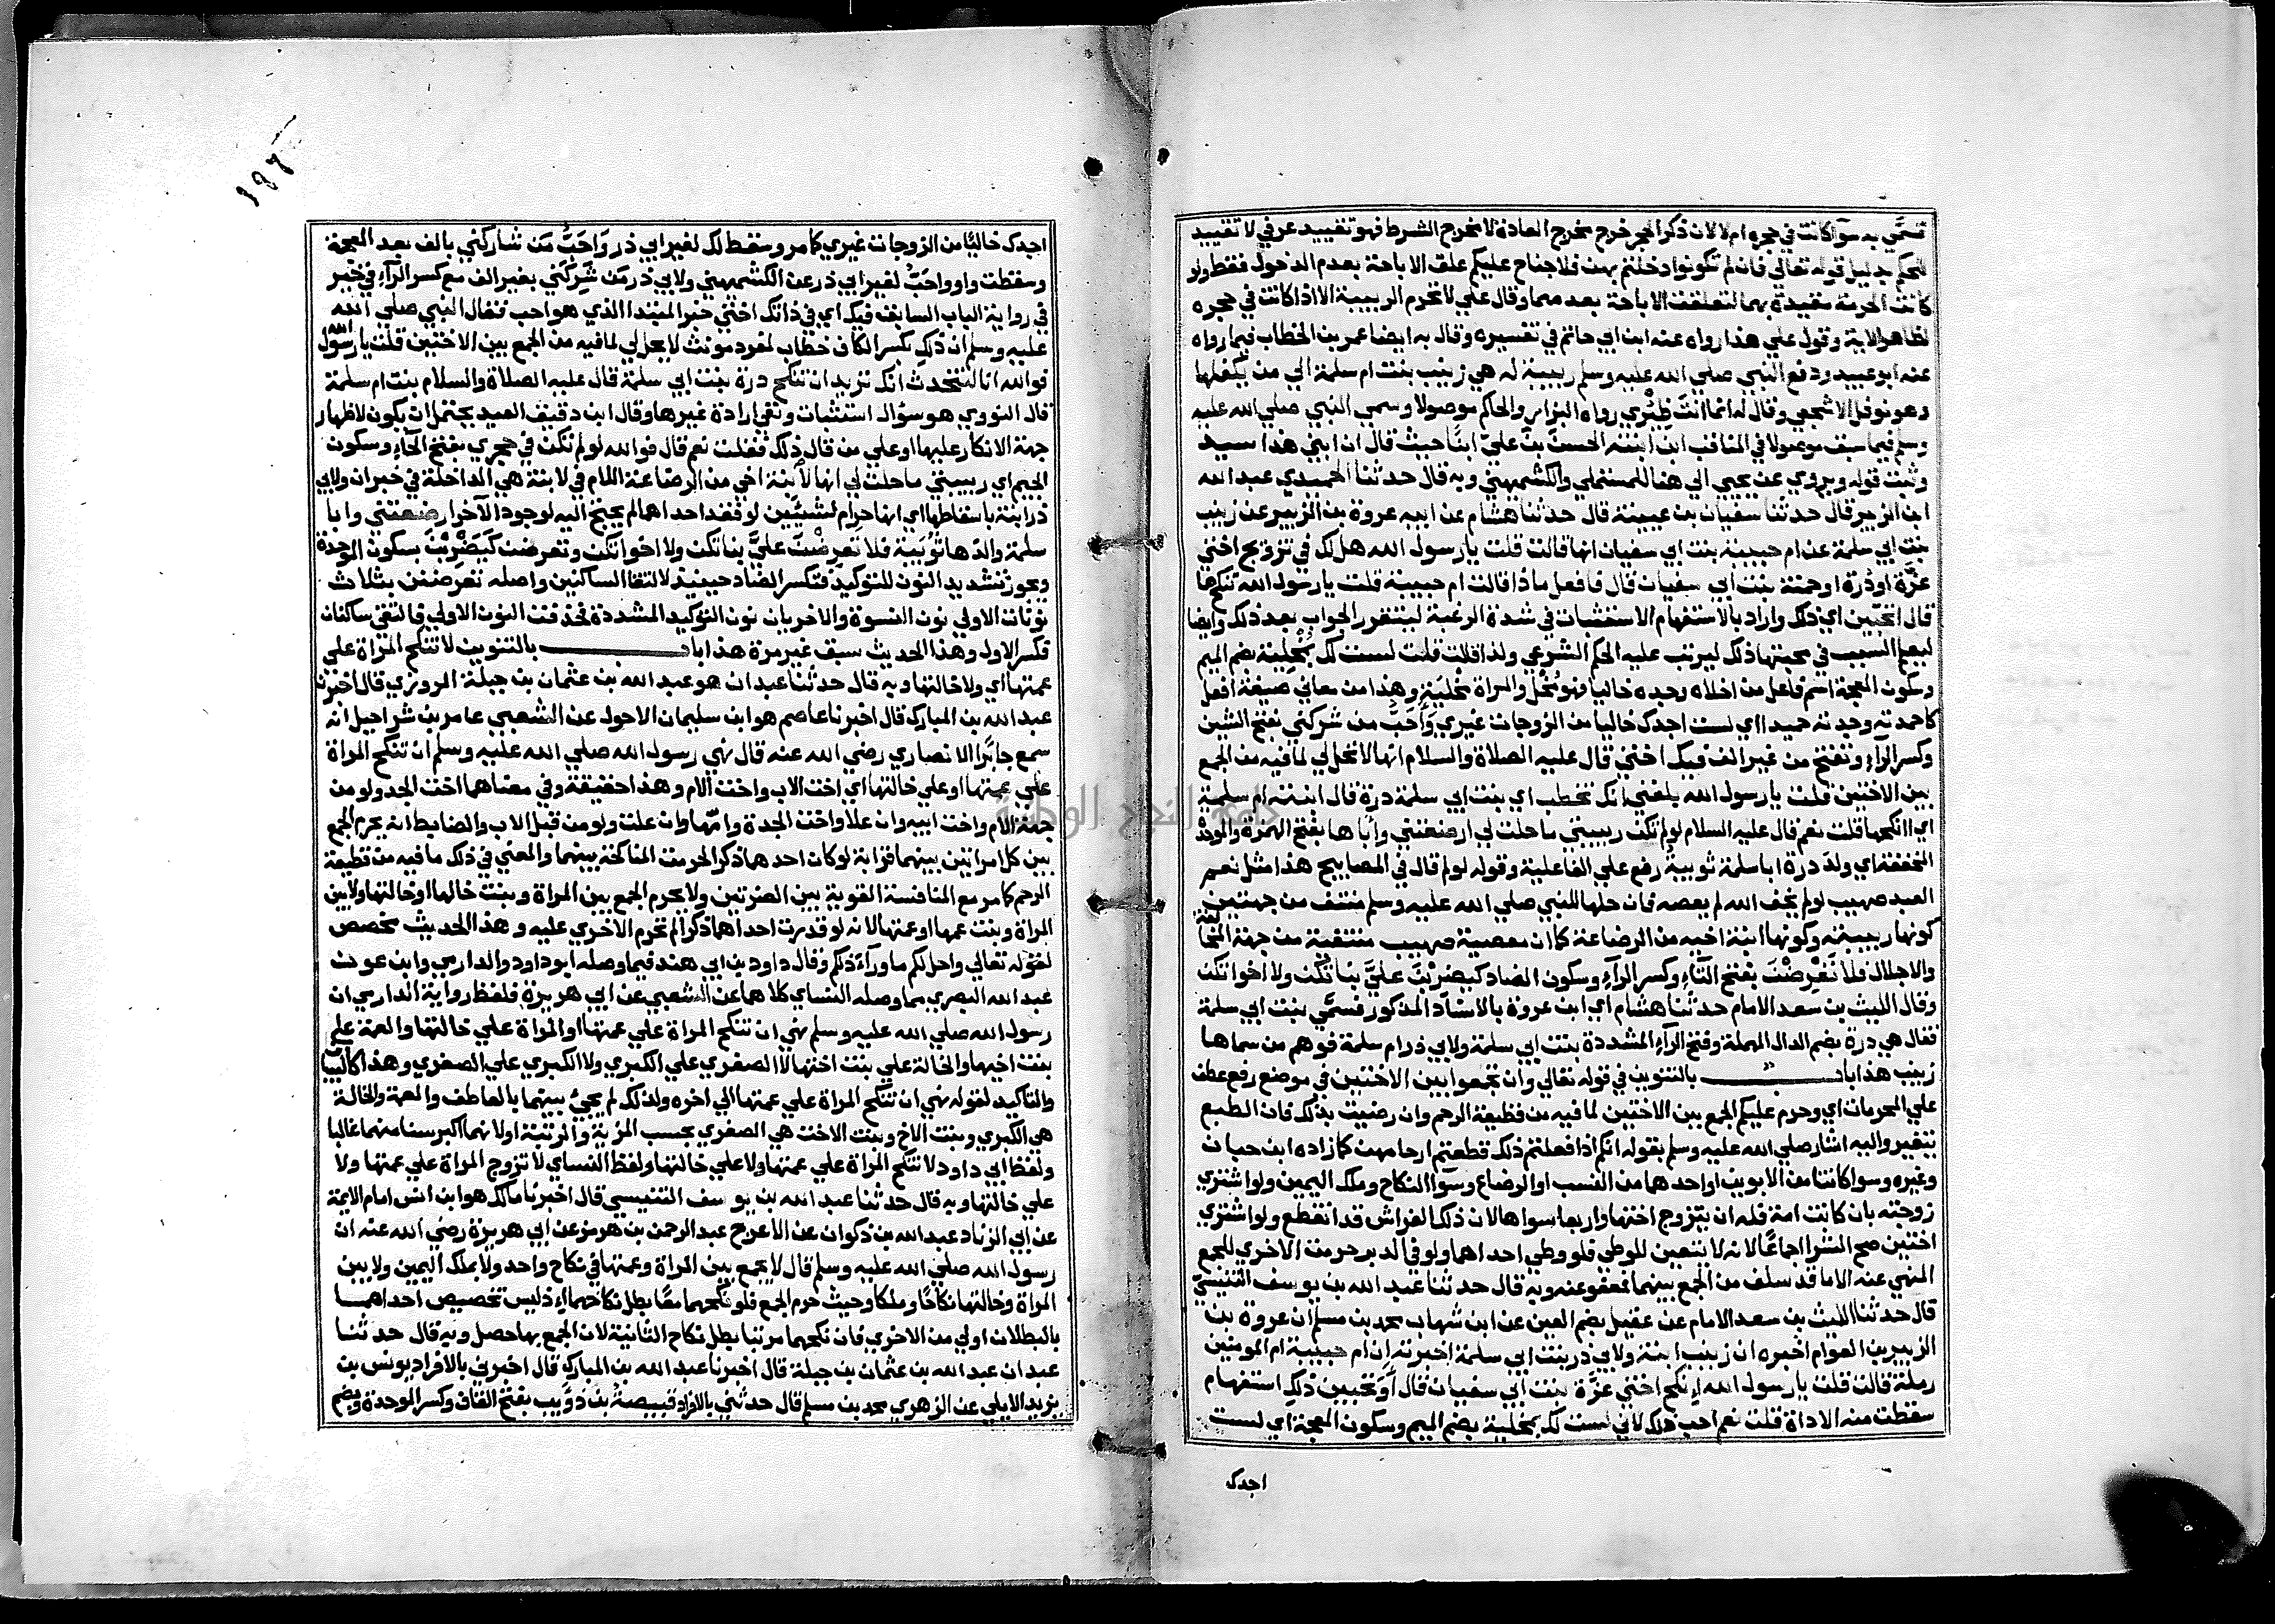 تسمى به سوآ كانت في حجره ام لا لان ذكر الحجر خرج مخرج العادة لا مخرج الشرط فهو تقييد عرفي لا تقييد
للحكم بدليل قوله تعالي فان لم تكونوا دخلتم بهن فلا جناح عليكم علق الاباحة بعدم الدخول فقط ولو
كانت الحرمة مقيدة بهما لتعلقت الاباحة بعدمهما وقال علي لا تحرم الربيبة الا اذا كانت في حجره
لظاهر الاية وقول علي هذا رواه عنه ابن ابي حاتم في تفسيره وقال به ايضا عمر بن الخطاب فيما رواه
عنه ابو عبيد ودفع النبي صلي الله عليه وسلم ربيبة له هي زينب بنت ام سلمة الي من يكفلها
وهو نوفل الاشجعي وقال له انما انت ظئري رواه البزار والحاكم موصولا وسمي النبي صلي الله عليه
وسلم فيما سبق موصولا في المناقب ابن ابنته الحسن بن علي ابنا حيث قال ان ابني هذا سيد
وثبت قوله ويروي عن يحيي الي هنا للمستملي والكشميهني وبه قال حدثنا الحميدي عبد الله
ابن الزبير قال حدثنا سفيان بن عيينة قال حدثنا هشام عن ابيه عروة بن الزبير عن زينب
بنت ابي سلمة عن ام حبيبة بنت ابي سفيان انها قالت قلت يا رسول الله هل لك في تزويج اختي
عزّة او دُرة او حمنة بنت ابي سفيان قال فافعل ماذا قالت ام حبيبة قلت يا رسول الله تنكحها
قال اتحبين اي ذلك واراد بالاستفهام الاستثبات في شدة الرغبة ليتقرر الجواب بعد ذلك وايضا
ليعلم السبب في محبتها ذلك ليرتب عليه الحكم الشرعي ولذا قالت قلت لست لك بمُخْلِية بضم الميم
وسكون المعجمة اسم فاعل من اخلاه وجده خاليا فهو مُخْل والمراة مُخْلية وهذا من معاني صيغة افعل
كاحمدته وجدته حميدا اي لست اجدك خاليا من الزوجات غيري وَأَحَبُّ من شركني بفتح الشين
وكسر الرآء وتفتح من غير الف فيك اختي قال عليه الصلاة والسلام انها لا تحل لي لما فيه من الجمع
بين الاختين قلت يا رسول الله بلغني انك تخطب اي بنت ابي سلمة درة قال ابنة ام سلمة
اي اانكحها قلت نعم قال عليه السلام لو لم تكن ربيبتي ما حلت لي ارضعتني وإباها بفتح الهمزة والموحدة
المخففة اي ولد درة ابا سلمة ثويبةُ رفع علي الفاعلية وقوله لو لم قال في المصابيح هذا مثل نعم
العبد صهيب لو لم يخف الله لم يعصه فان حلها للنبي صلي الله عليه وسلم منتف من جهتين
كونها ربيبته وكونها ابنة اخيه من الرضاعة كما ان معصية صهيب منتفية من جهة المخافة
والاجلال فلا تَعْرِضْنَ بفتح التآء وكسر الرآء وسكون الضاد كيضربْنَ عليَّ بناتكن ولا اخواتكن
وقال الليث بن سعد الامام حدثنا هشام اي ابن عروة بالاسناد المذكور فسمي بنت ابي سلمة
فقال هي درة بضم الدال المهملة وفتح الرآء المشددة بنت ابي سلمة ولابي ذر ام سلمة فوهم من سماها
زينب هذا باب بالتنوين في قوله تعالي وان تجمعوا بين الاختين في موضع رفع عطف
علي المحرمات اي وحرم عليكم الجمع بين الاختين لما فيه من قطيعة الرحم وان رضيت بذلك فان الطبع
يتغير واليه اشار صلي الله عليه وسلم بقوله انكم اذا فعلتم ذلك قطعتم ارحامهن كما زاده ابن حبان
وغيره وسوا كانتا من الابوين او احدهما من النسب او الرضاع وسوآ النكاح وملك اليمين ولو اشتري
زوجته بان كانت امة فله ان يتزوج اختها واربعا سواها لان ذلك الفراش قد انقطع ولو اشتري
اختين صح الشرا اجماعا لانه لا تتعين للوطي فلو وطي احداهما ولو في الدبر حرمت الاخري للجمع
المنهي عنه الا ما قد سلف من الجمع بينهما فعفو عنه وبه قال حدثنا عبد الله بن يوسف التنيسي
قال حدثنا الليث بن سعد الامام عن عقيل بضم العين عن ابن شهاب محمد بن مسلم ان عروة بن
الزبير بن العوام اخبره ان زينب ابنة ولابي ذر بنت ابي سلمة اخبرته ان ام حبيبة ام المومنين
رملة قالت قلت يا رسول الله انكح اختي عزّة بنت ابي سفيان قال أَوَتحبين ذلك استفهام
سقطت منه الاداة قلت نعم احب ذلك لاني لست لك بمخلية بضم الميم وسكون المعجمة اي لست
اجدك
١٩٦
اجدك خاليًا من الزوجات غيري كما مر وسقط لك لغير ابي ذر وَاَحَبُّ مَن شاركني بالف بعد المعجمة
وسقطت واو واحَبُّ لغير ابي ذر عن الكشميهني ولابي ذر مَن شَرِكَني بغير الف مع كسر الرآء في خير
في رواية الباب السابق فيك اي في ذاتك اختي خبر المبتدا الذي هو احب فقال النبي صلي الله
عليه وسلم ان ذلكِ بكسر الكاف خطاب لمفرد مونث لا يحل لي لما فيه من الجمع بين الاختين قلت يا رسول الله
فوالله انا لنتحدث انك تريد ان تنكح درة بنت ابي سلمة قال عليه الصلاة والسلام بنت ام سلمة
قال النووي هو سؤال استثبات ونفي ارادة غيرها وقال ابن دقيق العيد يحتمل ان يكون لاظهار
جهة الانكار عليها او علي من قال ذلك فقلت نعم قال فوالله لو لم تكن في حجري بفتح الحآء وسكون
الجيم اي ربيبتي ما حلت لي انها لأبنة اخي من الرضاعة اللام في لابنة هي الداخلة في خبر ان ولابي
ذر ابنة باسقاطها اي انها حرام لشيئين لو فقد احداهما لم يحتج اليه لوجود الآخر ارضعتني وابا
سلمة والدها ثُوَيبة فلا تَعرِضْنَ عليَّ بناتكن ولا اخواتكن وتعرضن كيَضْرِبْنَ بسكون الموحدة
ويجوز تشديد النون للتوكيد فتكسر الضاد حينيذ لالتقا الساكنين واصله تعرضنن بثلاث
نونات الاولي نون النسوة والاخريان نون التوكيد المشددة فحذفت النون الاولي فالتقي ساكنان
فكسر الاول وهذا الحديث سبق غير مرة هذا باب بالتنوين لا تنكح المراة علي
عمتها اي ولا خالتها وبه قال حدثنا عبدان هو عبد الله بن عثمان بن جبلة المروزي قال اخبرنا
عبد الله بن المبارك قال اخبرنا عاصم هو ابن سليمان الاحول عن الشعبي عامر بن شراحيل انه
سمع جابرًا الانصاري رضي الله عنه قال نهي رسول الله صلي الله عليه وسلم ان تنكح المراة
علي عمتها او علي خالتها اي اخت الاب واخت الام وهذا حقيقة وفي معناهما اخت الجد ولو من
جهة الام واخت ابيه وان علا واخت الجدة وامها وان علت ولو من قبل الاب والضابط انه يحرم الجمع
بين كل امراتين بينهما قرابة لو كان احدهما ذكرا لحرمت المناكحة بينهما والمعني في ذلك ما فيه من قطيعة
الرحم كما مر مع المنافسة القوية بين الضرتين ولا يحرم الجمع بين المراة وبنت خالها او خالتها ولا بين
المراة وبنت عمها او عمتها لانه لو قدرت احداهما ذكرا لم تحرم الاخري عليه وهذا الحديث مخصص
لقوله تعالي واحل لكم ما ورآء ذلكم وقال داود بن ابي هند فيما وصله ابو داود والدارمي وابن عون
عبد الله البصري مما وصله النساي كلاهما عن الشعبي عن ابي هريرة فلفظ رواية الدارمي ان
رسول الله صلي الله عليه وسلم نهي ان تنكح المراة علي عمتها او المراة علي خالتها والعمة علي
بنت اخيها والخالة علي بنت اختها لا الصغري علي الكبري ولا الكبري علي الصغري وهذا كالبيان
والتاكيد لقوله نهي ان تنكح المراة علي عمتها الي اخره ولذلك لم يجيْ بينهما بالعاطف والعمة والخالة
هي الكبري وبنت الاخ وبنت الاخت هي الصغري بحسب المزية والمرتبة او لانهما اكبر سنا منهما غالبا
ولفظ ابي داود لا تنكح المراة علي عمتها ولا علي خالتها ولفظ النساي لا تزوج المراة علي عمتها ولا
علي خالتها وبه قال حدثنا عبد الله بن يوسف التنيسي قال اخبرنا مالك هو ابن انس امام الايمة
عن ابي الزناد عبد الله بن ذكوان عن الاعرج عبد الرحمن بن هرمز عن ابي هريرة رضي الله عنه ان
رسول الله صلي الله عليه وسلم قال لا يجمع بين المراة وعمتها في نكاح واحد ولا بملك اليمين ولا بين
المراة وخالتها نكاحًا وملكا وحيث حرم الجمع فلو نكحهما معًا بطل نكاحهما اذ ليس تخصيص احداهما
بالبطلان اولي من الاخري فان نكحهما مرتبا بطل نكاح الثانية لان الجمع بها حصل وبه قال حدثنا
عبدان عبد الله بن عثمان بن جبلة قال اخبرنا عبد الله بن المبارك قال اخبرني بالافراد يونس بن
يزيد الايلي عن الزهري محمد بن مسلم قال حدثني بالافراد قبيصة بن ذؤيب بفتح القاف وكسر الموحدة وبضم
جامعة النجاح الوطنية